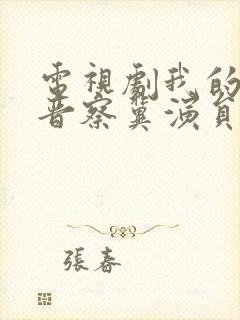 電視劇我的
晉察冀演員
張春